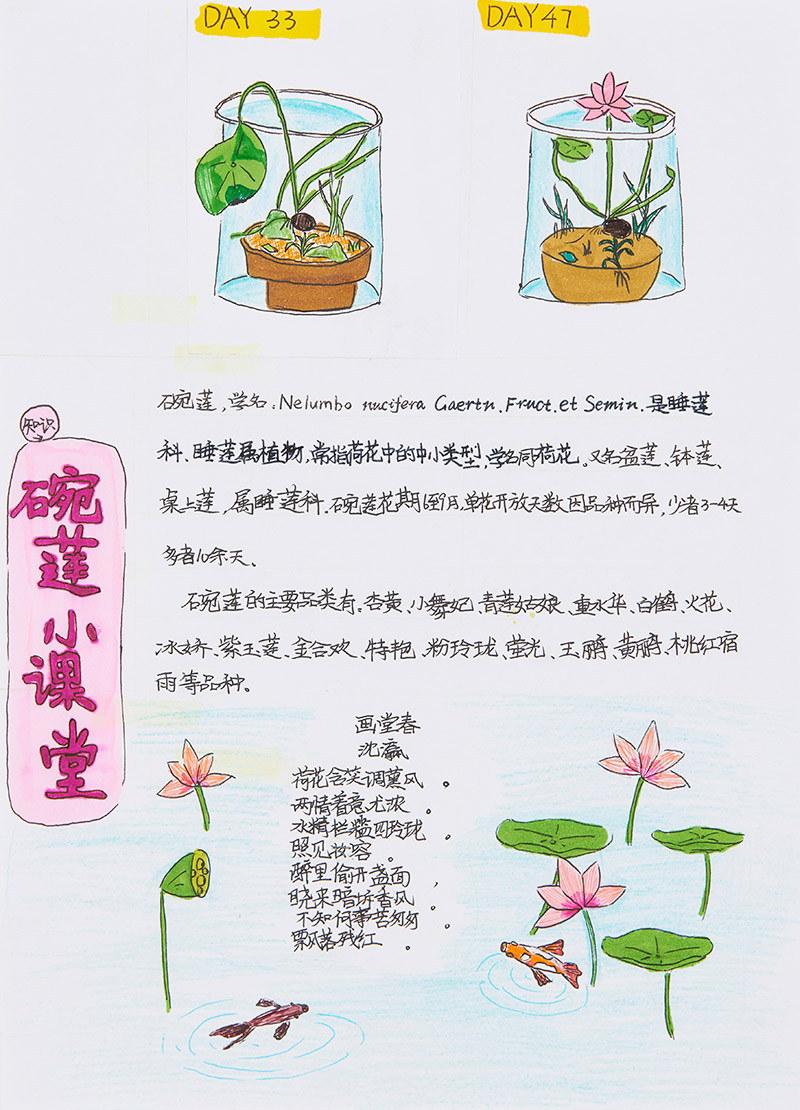 DAY 33
DAY 47
知识
碗莲小课堂
碗莲,学名:Nelumbo nucifera Gaertn.Fruct.et Semin.是睡莲
科、睡莲属植物,常指荷花中的中小类型,学名同荷花。又名盆莲、钵莲、
桌上莲,属睡莲科.碗莲花期6至9月,单花开放天数因品种而异,少者3-4天
多者10余天、
碗莲的主要品类有.杏黄、小舞妃、青莲姑娘、重水华、白鹤、火花、
冰娇、紫玉莲、金合欢、特艳、粉玲珑、萤光、玉鹏、黄鹏、桃红宿
雨等品种。
画堂春
沈瀛
荷花含笑调薰风。
两情着意尤浓。
水精栏槛四玲珑。
照见妆容。
醉里偷开盏面,
晓来暗坼香风。
不知何事苦匆匆。
飘落残红。